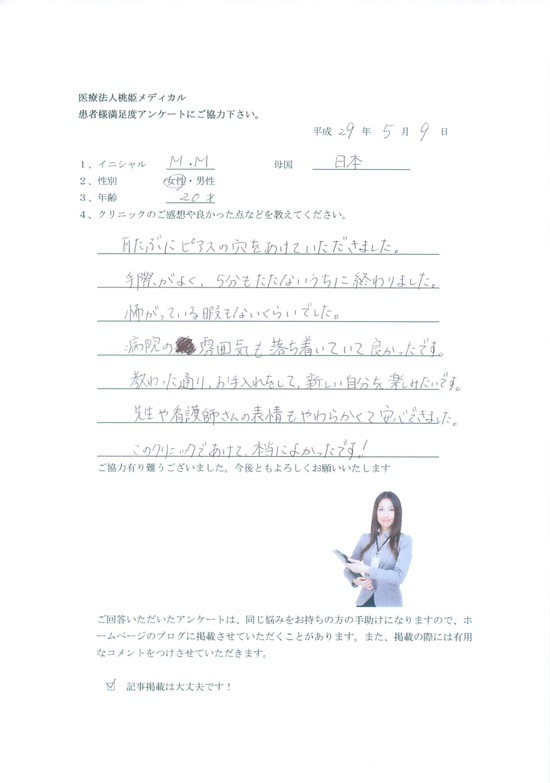 医療法人桃姫メディカル
患者様満足度アンケートにご協力下さい。
平成 29 年 5 月 9 日
1、イニシャル M.M 母国 日本
2、性別 女性・男性
3、年齢 20才
4、クリニックのご感想や良かった点などを教えてください。
耳たぶにピアスの穴をあけていただきました。
手際がよく、5分もたたないうちに終わりました。
怖がっている暇もないくらいでした。
病院の雰囲気も落ち着いていて良かったです。
教わった通り、お手入れをして、新しい自分を楽しみたいです。
先生や看護師さんの表情もやわらかくて安心できました。
このクリニックであけて、本当によかったです!
ご協力有り難うございました。今後ともよろしくお願いいたします
ご回答いただいたアンケートは、同じ悩みをお持ちの方の手助けになりますので、ホ
ームページのブログに掲載させていただくことがあります。また、掲載の際には有用
なコメントをつけさせていただきます。
☑ 記事掲載は大丈夫です!